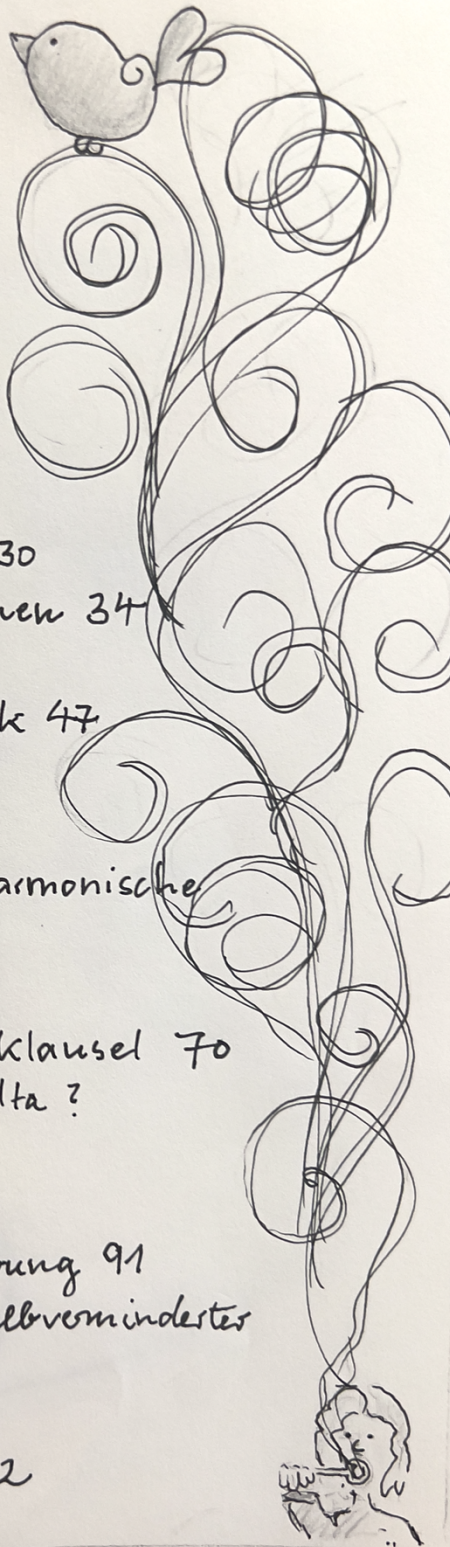 30
nen 34
k 47
armonische
klausel 70
lta ?
rung 91
lbverminderter
2